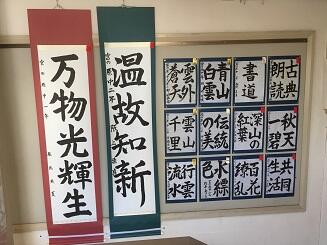 万物光輝生
温故知新
雲外
蒼天
青山
白雲
書道
古典
朗読
雲山
千里
伝統
の美
深山の
紅葉
秋天
一碧
行雲
流水
百花
繚乱
共同
生活